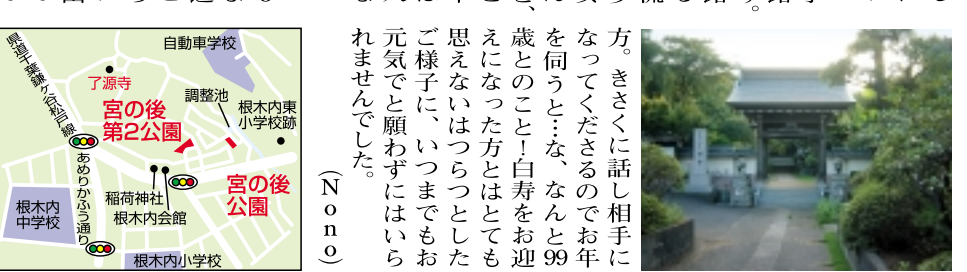 方。きさくに話し相手に
なってくださるのでお年
を伺うと…な、なんと99
歳とのこと！白寿をお迎
えになった方とはとても
思えないはつらつとした
ご様子に、いつまでもお
元気でと願わずにはいら
れませんでした。
（Nono）
自動車学校
県道千葉鎌ヶ谷松戸線
了源寺
宮の後
第2公園
調整池
根木内東
小学校跡
あめりかふう通り
稲荷神社
根木内会館
宮の後
公園
根木内
中学校
根木内小学校